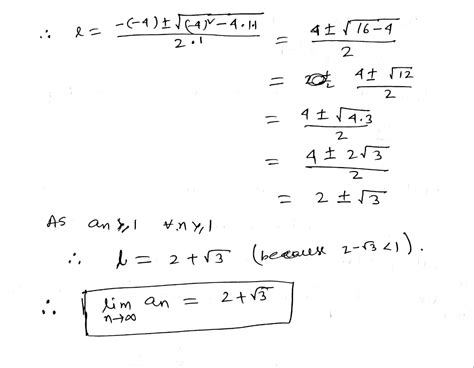 ∴ l = -(-4) ± √(-4)² - 4·1·1 / 2·1 = 4 ± √16-4 / 2
= 4 ± √12 / 2
= 4 ± √4·3 / 2
= 4 ± 2√3 / 2
= 2 ± √3
As an ≥ 1 ∀ n ≥ 1
∴ l = 2 + √3 (because 2-√3 < 1).
∴ lim n→∞ an = 2 + √3